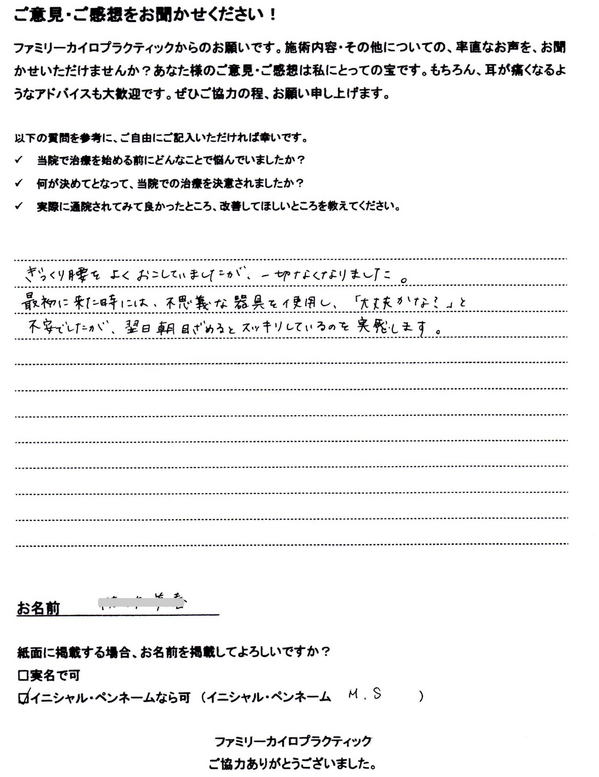 ご意見・ご感想をお聞かせください！
ファミリーカイロプラクティックからのお願いです。施術内容・その他についての、率直なお声を、お聞
かせいただけませんか？あなた様のご意見・ご感想は私にとっての宝です。もちろん、耳が痛くなるよ
うなアドバイスも大歓迎です。ぜひご協力の程、お願い申し上げます。
以下の質問を参考に、ご自由にご記入いただければ幸いです。
✓ 当院で治療を始める前にどんなことで悩んでいましたか？
✓ 何が決めてとなって、当院での治療を決意されましたか？
✓ 実際に通院されてみて良かったところ、改善してほしいところを教えてください。
ぎっくり腰をよくおこしていましたが、一切なくなりました。
最初に来た時には、不思義な器具を使用し、「大丈夫かな？」と
不安でしたが、翌日朝目ざめるとスッキリしているのを実感します。
お名前
紙面に掲載する場合、お名前を掲載してよろしいですか？
□実名で可
☑イニシャル・ペンネームなら可（イニシャル・ペンネーム M.S ）
ファミリーカイロプラクティック
ご協力ありがとうございました。